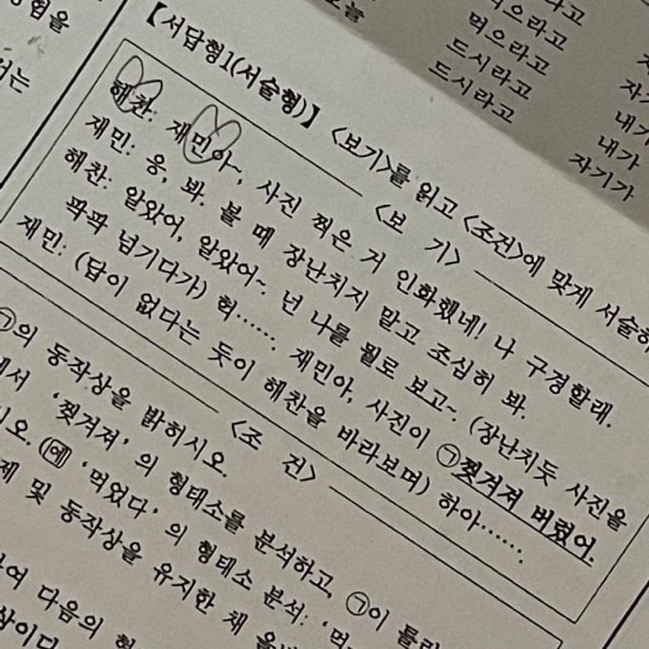 험을
서는
오늘
먹으라고
드시라고
드시라고
자기
내가
내가
자기가
【서답형1(서술형)】 <보기>를 읽고 <조건>에 맞게 서술하
<보 기>
해찬: 재민아~, 사진 찍은 거 인화했네! 나 구경할래.
재민: 응, 봐. 볼 때 장난치지 말고 조심히 봐.
해찬: 알았어, 알았어~. 넌 나를 뭘로 보고~. (장난치듯 사진을
팍팍 넘기다가) 허…… 재민아, 사진이 ㉠찢겨져 버렸어.
재민: (답이 없다는 듯이 해찬을 바라보며) 하아…….
<조 건>
㉠의 동작상을 밝히시오.
에서 '찢겨져'의 형태소를 분석하고, ㉠이 틀
시오. (예 '먹었다'의 형태소 분석: '먹
제 및 동작상을 유지한 채 올
하여 다음의 형